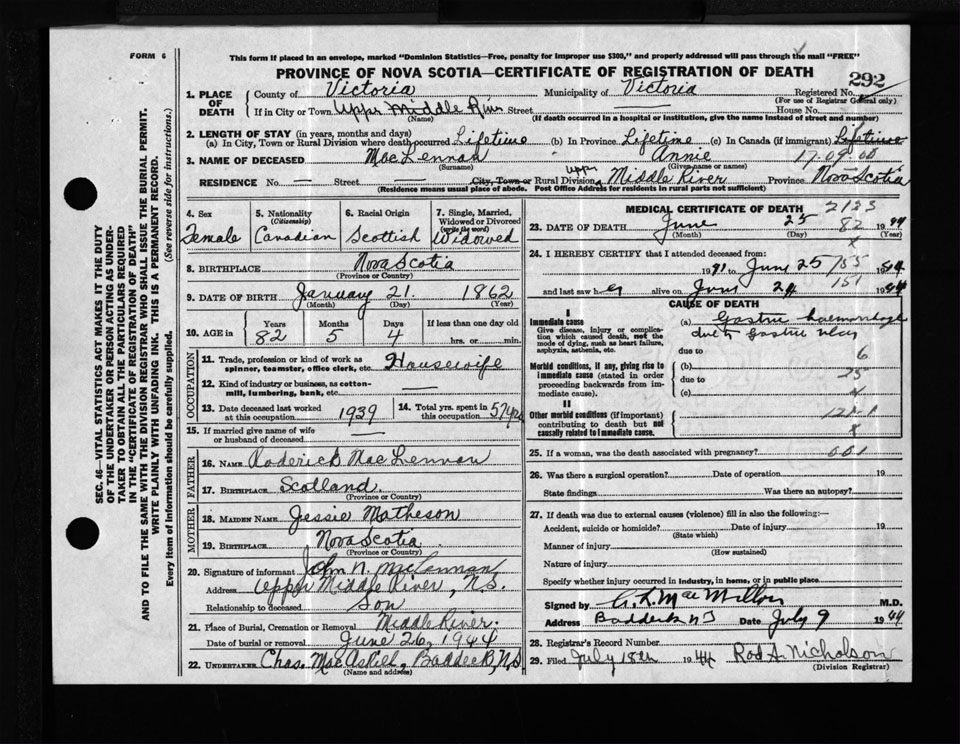 FORM 6
This form if placed in an envelope, marked "Dominion Statistics—Free, penalty for improper use $300," and properly addressed will pass through the mail "FREE"
PROVINCE OF NOVA SCOTIA—CERTIFICATE OF REGISTRATION OF DEATH
292
1. PLACE OF DEATH
County of Victoria Municipality of Victoria Registered No.
(For use of Registrar General only)
If in City or Town Upper Middle River Street — House No.
(Name) (If death occurred in a hospital or institution, give the name instead of street and number)
2. LENGTH OF STAY (in years, months and days)
(a) In City, Town or Rural Division where death occurred Lifetime (b) In Province Lifetime (c) In Canada (if immigrant) Lifetime
3. NAME OF DECEASED MacLennan Annie 17.09.00
(Surname) (Given name or names)
RESIDENCE No. — Street City, Town or Rural Division Upper Middle River Province Nova Scotia
(Residence means usual place of abode. Post Office Address for residents in rural parts not sufficient)
SEC. 46—VITAL STATISTICS ACT MAKES IT THE DUTY
OF THE UNDERTAKER OR PERSON ACTING AS UNDER-
TAKER TO OBTAIN ALL THE PARTICULARS REQUIRED
IN THE "CERTIFICATE OF REGISTRATION OF DEATH"
AND TO FILE THE SAME WITH THE DIVISION REGISTRAR WHO SHALL ISSUE THE BURIAL PERMIT.
WRITE PLAINLY WITH UNFADING INK. THIS IS A PERMANENT RECORD.
Every item of information should be carefully supplied. (See reverse side for instructions.)
4. Sex
Female
5. Nationality
(Citizenship)
Canadian
6. Racial Origin
Scottish
7. Single, Married,
Widowed or Divorced
(write the word)
Widowed
8. BIRTHPLACE Nova Scotia
(Province or Country)
9. DATE OF BIRTH January 21. 1862
(Month) (Day) (Year)
10. AGE in
Years Months Days If less than one day old
82 5 4 hrs. or min.
OCCUPATION
11. Trade, profession or kind of work as
spinner, teamster, office clerk, etc. Housewife
12. Kind of industry or business, as cotton-
mill, lumbering, bank, etc. —
13. Date deceased last worked
at this occupation 1939
14. Total yrs. spent in
this occupation 57 yrs
15. If married give name of wife
or husband of deceased —
FATHER
16. NAME Roderick MacLennan
17. BIRTHPLACE Scotland.
(Province or Country)
MOTHER
18. MAIDEN NAME Jessie Matheson
19. BIRTHPLACE Nova Scotia
(Province or Country)
20. Signature of informant John N. MacLennan
Address Upper Middle River, N.S.
Relationship to deceased Son
21. Place of Burial, Cremation or Removal Middle River.
Date of burial or removal June 26, 1944
22. UNDERTAKER Chas. MacAskill, Baddeck, N.S
(Name and address)
MEDICAL CERTIFICATE OF DEATH 2123
23. DATE OF DEATH June 25 82 1944
(Month) (Day) (Year)
24. I HEREBY CERTIFY that I attended deceased from:
1941 to June 25 1944
and last saw her alive on June 24 151 1944
CAUSE OF DEATH
I
Immediate cause
Give disease, injury or complica-
tion which caused death, not the
mode of dying, such as heart failure,
asphyxia, asthenia, etc.
(a) Gastric haemorrhage
due to Gastric ulcer
due to 6
Morbid conditions, if any, giving rise to
immediate cause (stated in order
proceeding backwards from im-
mediate cause).
(b)
due to 25
(c)
II
Other morbid conditions (if important)
contributing to death but not
causally related to immediate cause.
25. If a woman, was the death associated with pregnancy? 001
26. Was there a surgical operation? Date of operation 19
State findings Was there an autopsy?
27. If death was due to external causes (violence) fill in also the following:—
Accident, suicide or homicide? Date of injury 19
(State which)
Manner of injury
(How sustained)
Nature of injury
Specify whether injury occurred in industry, in home, or in public place
Signed by C. L. MacMillan M.D.
Address Baddeck NS Date July 9 1944
28. Registrar's Record Number
29. Filed July 18th 1944 Rod A. Nicholson
(Division Registrar)